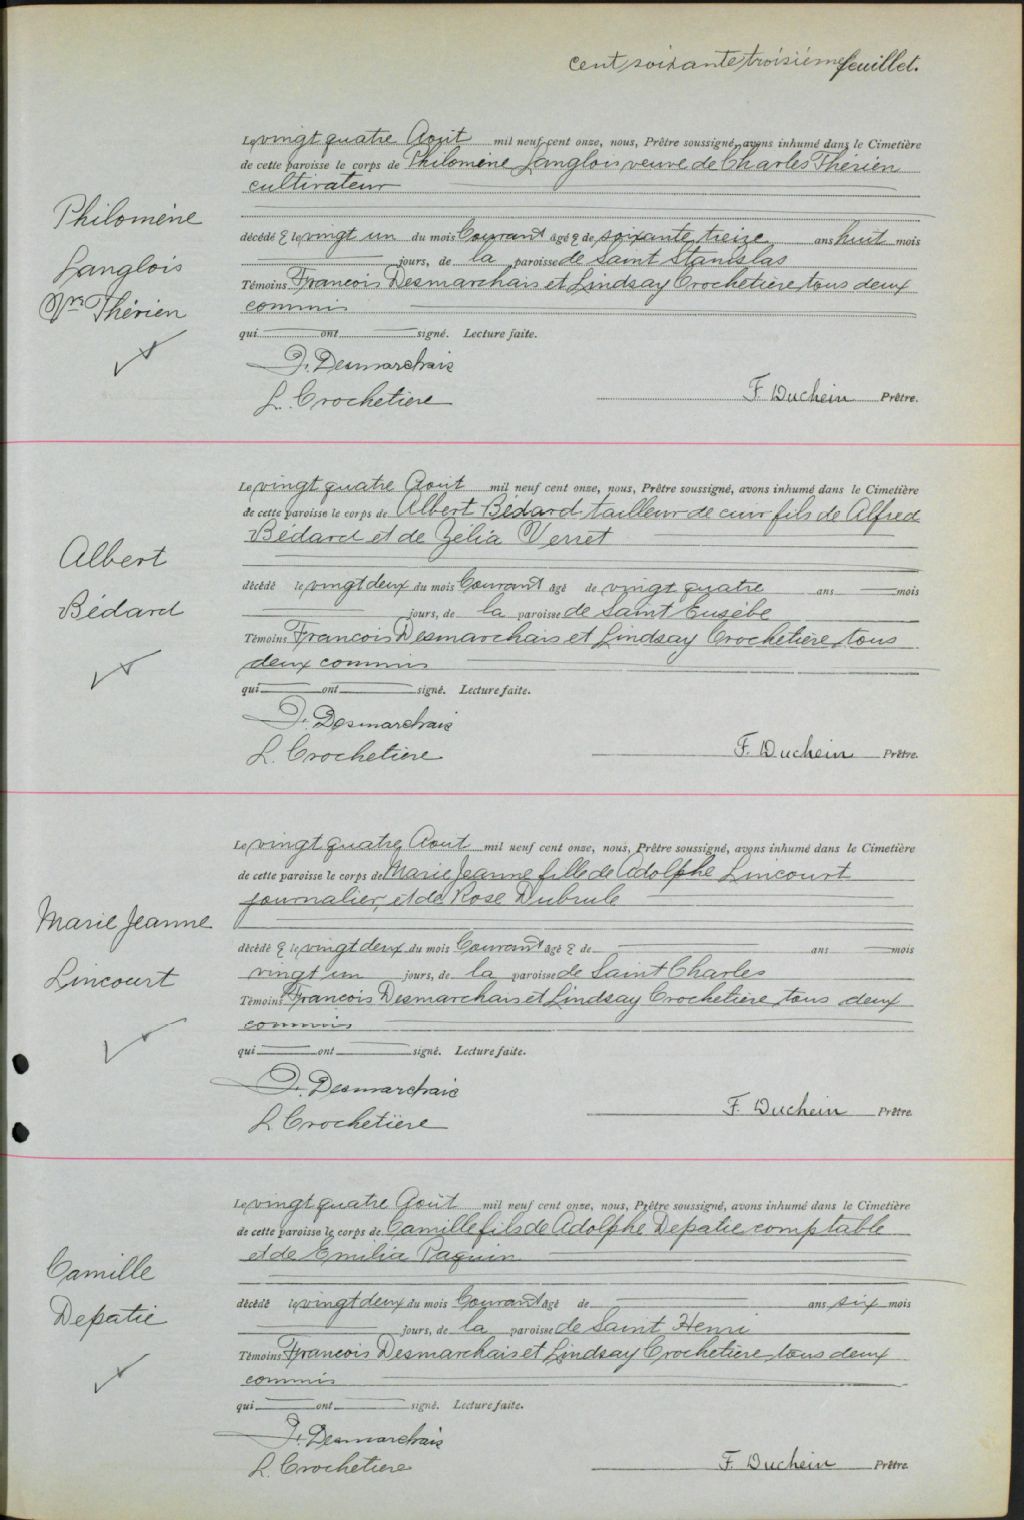 cent soixante troisième feuillet.
Le vingt quatre Août mil neuf cent onze, nous, Prêtre soussigné, avons inhumé dans le Cimetière
de cette paroisse le corps de Philomène Langlois veuve de Charles Thérien
cultivateur
Philomène
Langlois
Vve Thérien
décédé e le vingt un du mois Courant âgé e de soixante treize ans huit mois
jours, de la paroisse de Saint Stanislas
Témoins Francois Desmarchais et Lindsay Crochetière tous deux
commis
qui ont signé. Lecture faite.
F. Desmarchais
L. Crochetière
F. Duchein Prêtre.
Le vingt quatre Août mil neuf cent onze, nous, Prêtre soussigné, avons inhumé dans le Cimetière
de cette paroisse le corps de Albert Bédard tailleur de cuir fils de Alfred
Bédard et de Zélia Verret
Albert
Bédard
décédé le vingt deux du mois Courant âgé de vingt quatre ans mois
jours, de la paroisse de Saint Eusèbe
Témoins Francois Desmarchais et Lindsay Crochetière tous
deux commis
qui ont signé. Lecture faite.
F. Desmarchais
L. Crochetière
F. Duchein Prêtre.
Le vingt quatre Aout mil neuf cent onze, nous, Prêtre soussigné, avons inhumé dans le Cimetière
de cette paroisse le corps de Marie Jeanne fille de Adolphe Lincourt
journalier, et de Rose Dubrule
Marie Jeanne
Lincourt
décédé e le vingt deux du mois Courant âgé e de ans mois
vingt un jours, de la paroisse de Saint Charles
Témoins Francois Desmarchais et Lindsay Crochetière tous deux
commis
qui ont signé. Lecture faite.
F. Desmarchais
L. Crochetière
F. Duchein Prêtre.
Le vingt quatre Août mil neuf cent onze, nous, Prêtre soussigné, avons inhumé dans le Cimetière
de cette paroisse le corps de Camille fils de Adolphe Depatie comptable
et de Emilia Paquin
Camille
Depatie
décédé le vingt deux du mois Courant âgé de ans six mois
jours, de la paroisse de Saint Henri
Témoins Francois Desmarchais et Lindsay Crochetière tous deux
commis
qui ont signé. Lecture faite.
F. Desmarchais
L. Crochetiere
F. Duchein Prêtre.